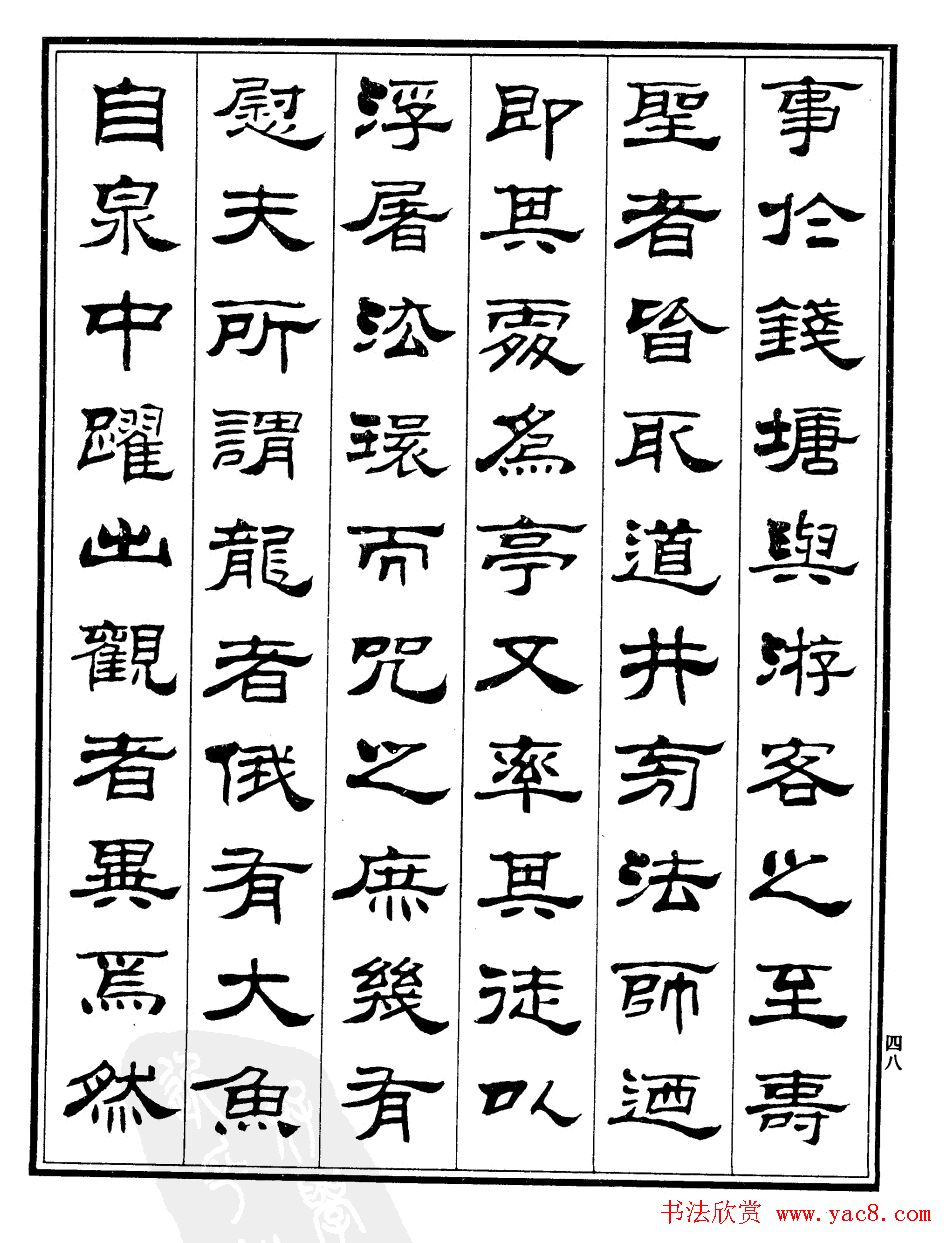 事於錢塘與游客之至壽
聖者皆取道井旁法師迺
即其處為亭又率其徒以
浮屠法環而咒之庶幾有
慰夫所謂龍者俄有大魚
自泉中躍出觀者異焉然
四八
书法欣赏 www.yac8.com